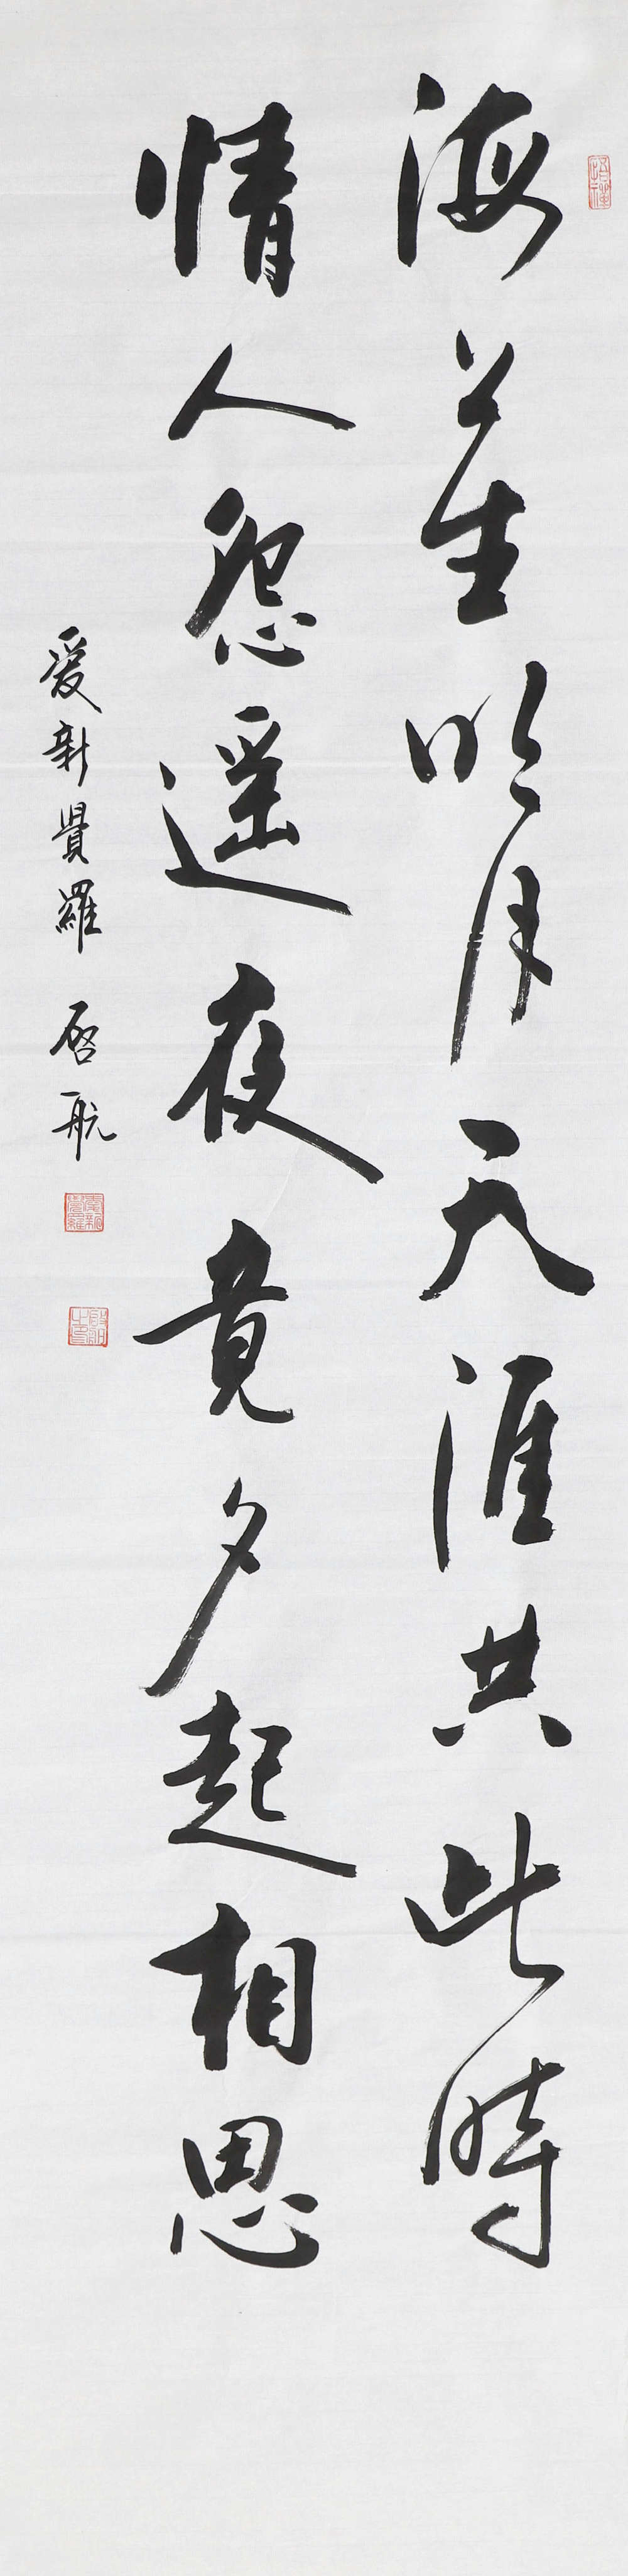 海上生明月天涯共此時
情人怨遥夜竟夕起相思
愛新覺羅 啓航
愛新覺羅